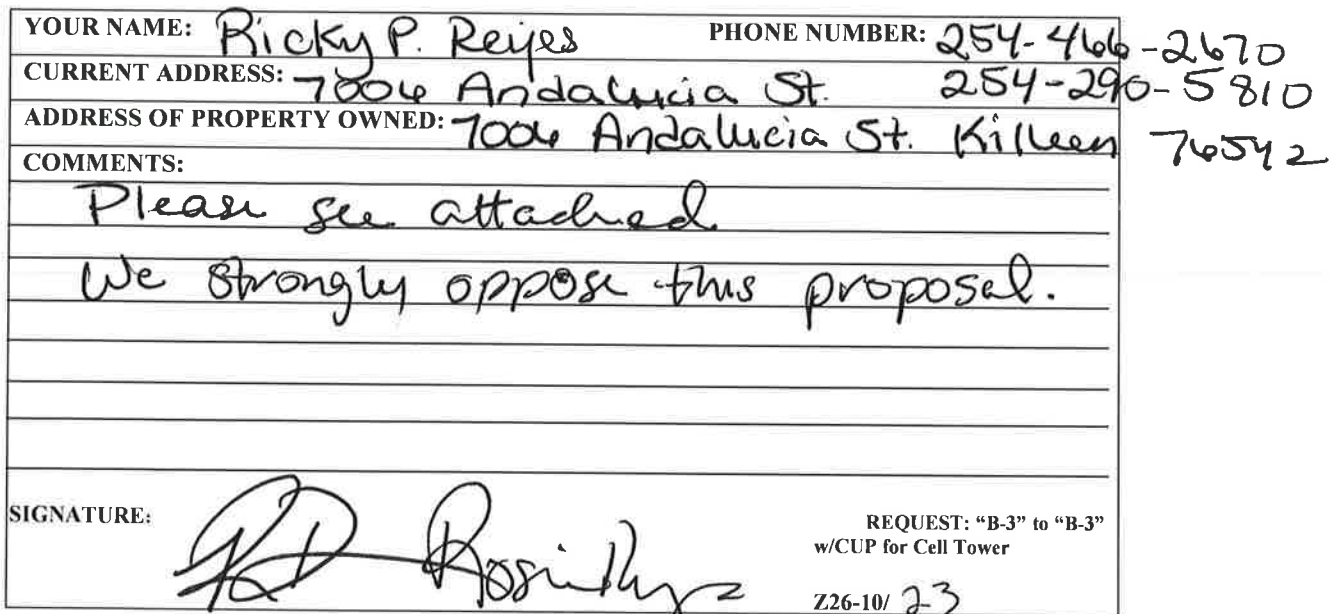 YOUR NAME: Ricky P. Reyes PHONE NUMBER: 254-466-2670
CURRENT ADDRESS: 7006 Andalucia St. 254-290-5810
ADDRESS OF PROPERTY OWNED: 7006 Andalucia St. Killeen 76542
COMMENTS:
Please see attached
We strongly oppose this proposal.
SIGNATURE:
REQUEST: "B-3" to "B-3"
w/CUP for Cell Tower
Z26-10/ 23